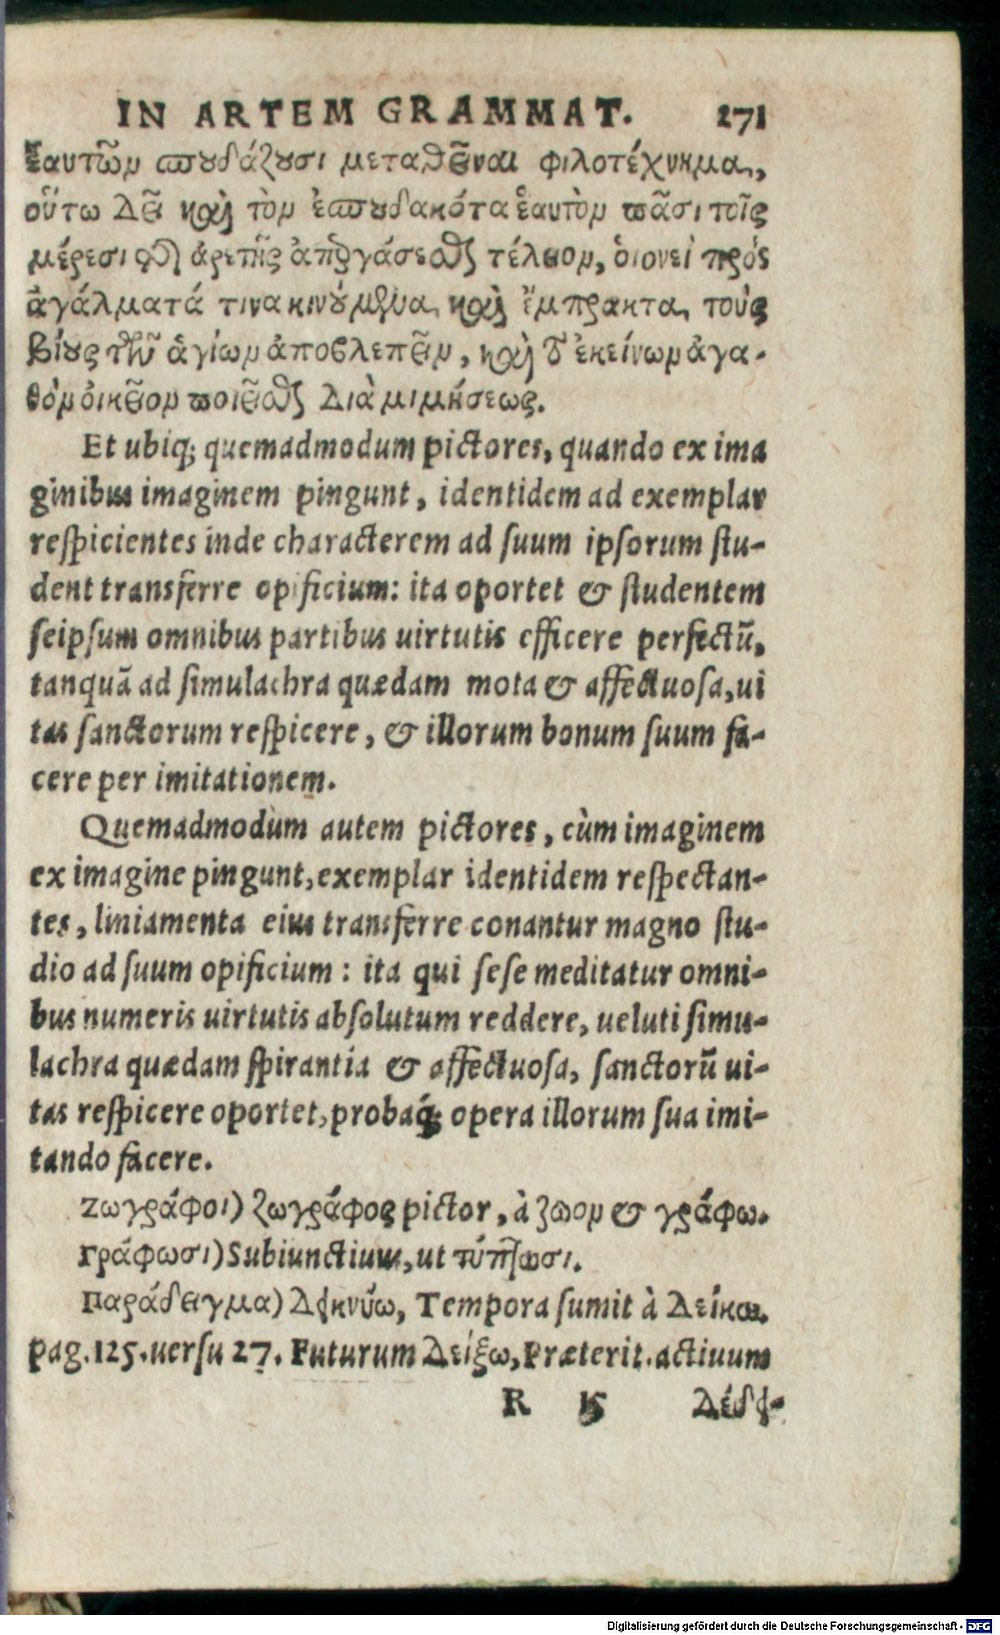 IN ARTEM GRAMMAT. 271
ἑαυτῶν σπουδάζουσι μεταθεῖναι φιλοτέχνημα,
οὕτω δεῖ καὶ τὸν ἐσπουδακότα ἑαυτὸν πᾶσι τοῖς
μέρεσι τῆς ἀρετῆς ἀπεργάσεσθαι τέλειον, οἱονεὶ πρὸς
ἀγάλματά τινα κινούμενα, καὶ ἔμπρακτα, τοὺς
βίους τῶν ἁγίων ἀποβλέπειν, καὶ τὸ ἐκείνων ἀγα-
θὸν οἰκεῖον ποιεῖσθαι διὰ μιμήσεως.
Et ubiq; quemadmodum pictores, quando ex ima
ginibus imaginem pingunt, identidem ad exemplar
respicientes inde characterem ad suum ipsorum stu-
dent transferre opificium: ita oportet & studentem
seipsum omnibus partibus uirtutis efficere perfectū,
tanquā ad simulachra quædam mota & affectuosa, ui
tas sanctorum respicere, & illorum bonum suum fa-
cere per imitationem.
Quemadmodum autem pictores, cùm imaginem
ex imagine pingunt, exemplar identidem respectan-
tes, liniamenta eius transferre conantur magno stu-
dio ad suum opificium: ita qui sese meditatur omni-
bus numeris uirtutis absolutum reddere, ueluti simu-
lachra quædam spirantia & affectuosa, sanctorū ui-
tas respicere oportet, probaq́; opera illorum sua imi-
tando facere.
ζωγράφοι) ζωγράφος pictor, à ζῶον & γράφω.
Γράφωσι) Subiunctiuus, ut τύπτωσι.
Παράδειγμα) Δεικνύω, Tempora sumit à Δείκω.
pag. 125. uersu 27. Futurum Δείξω, Præterit. actiuum
R 5 Δέδει-
Digitalisierung gefördert durch die Deutsche Forschungsgemeinschaft - DFG